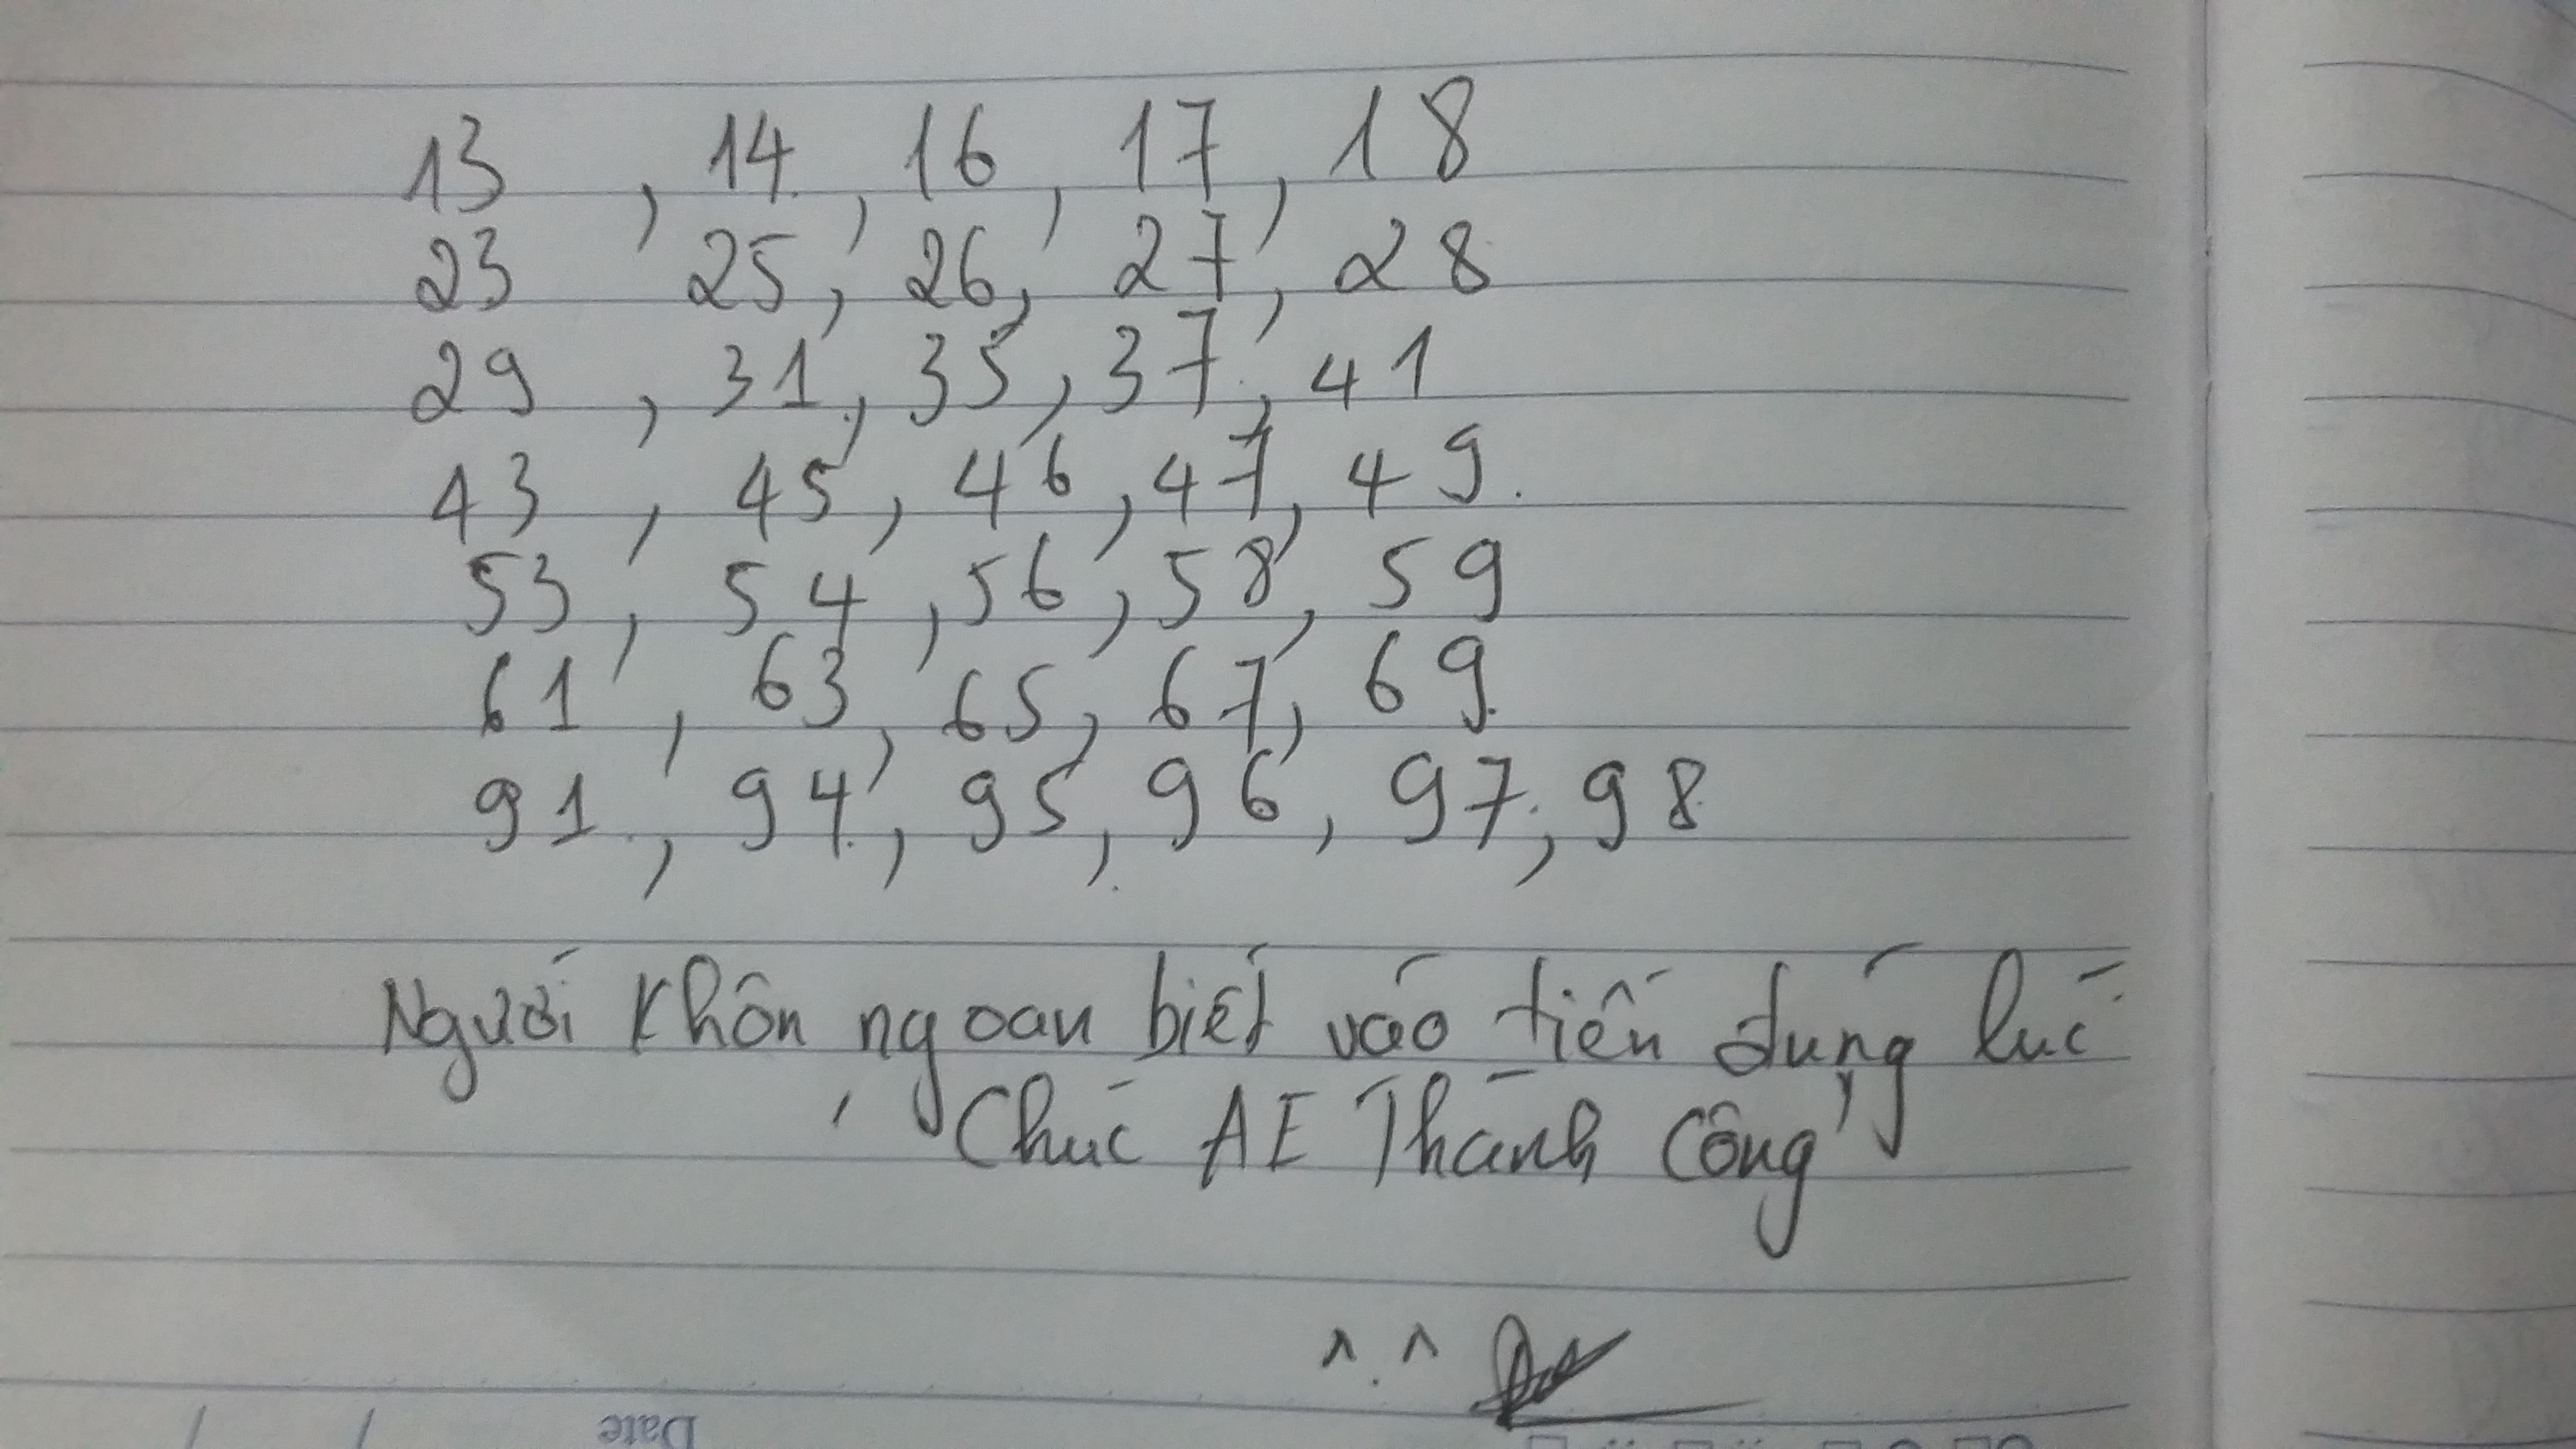 13 , 14 , 16 , 17 , 18
23 25 , 26 , 27 , 28
29 , 31 , 35 , 37 , 41
43 , 45 , 46 , 47 , 49 .
53 , 54 , 56 , 58 , 59
61 , 63 , 65 , 67 , 69
91 , 94 , 95 , 96 , 97 , 98
Người khôn ngoan biết vào tiền đúng lúc
, Chúc AE Thành Công
^.^
Date